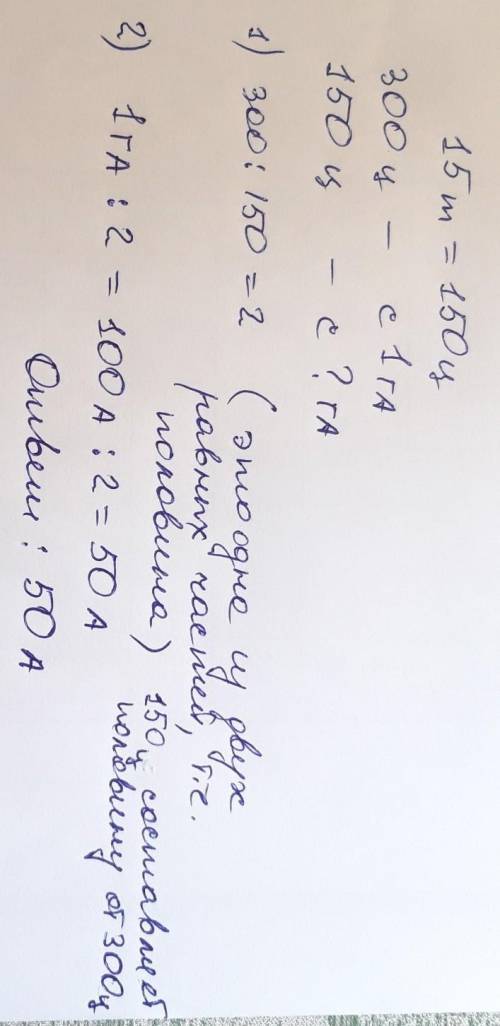 15 т = 150 ц
300 ц – с 1 га
150 ц – с ? га
1) 300 : 150 = 2 (это одна из двух
равных частей, т.е.
половина)
150 ц составляет
половину от 300 ц
2) 1 га : 2 = 100 а : 2 = 50 а
Ответ : 50 а